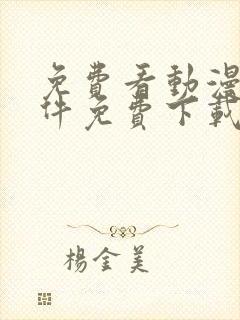 免費看動漫
件免費下載
楊金美